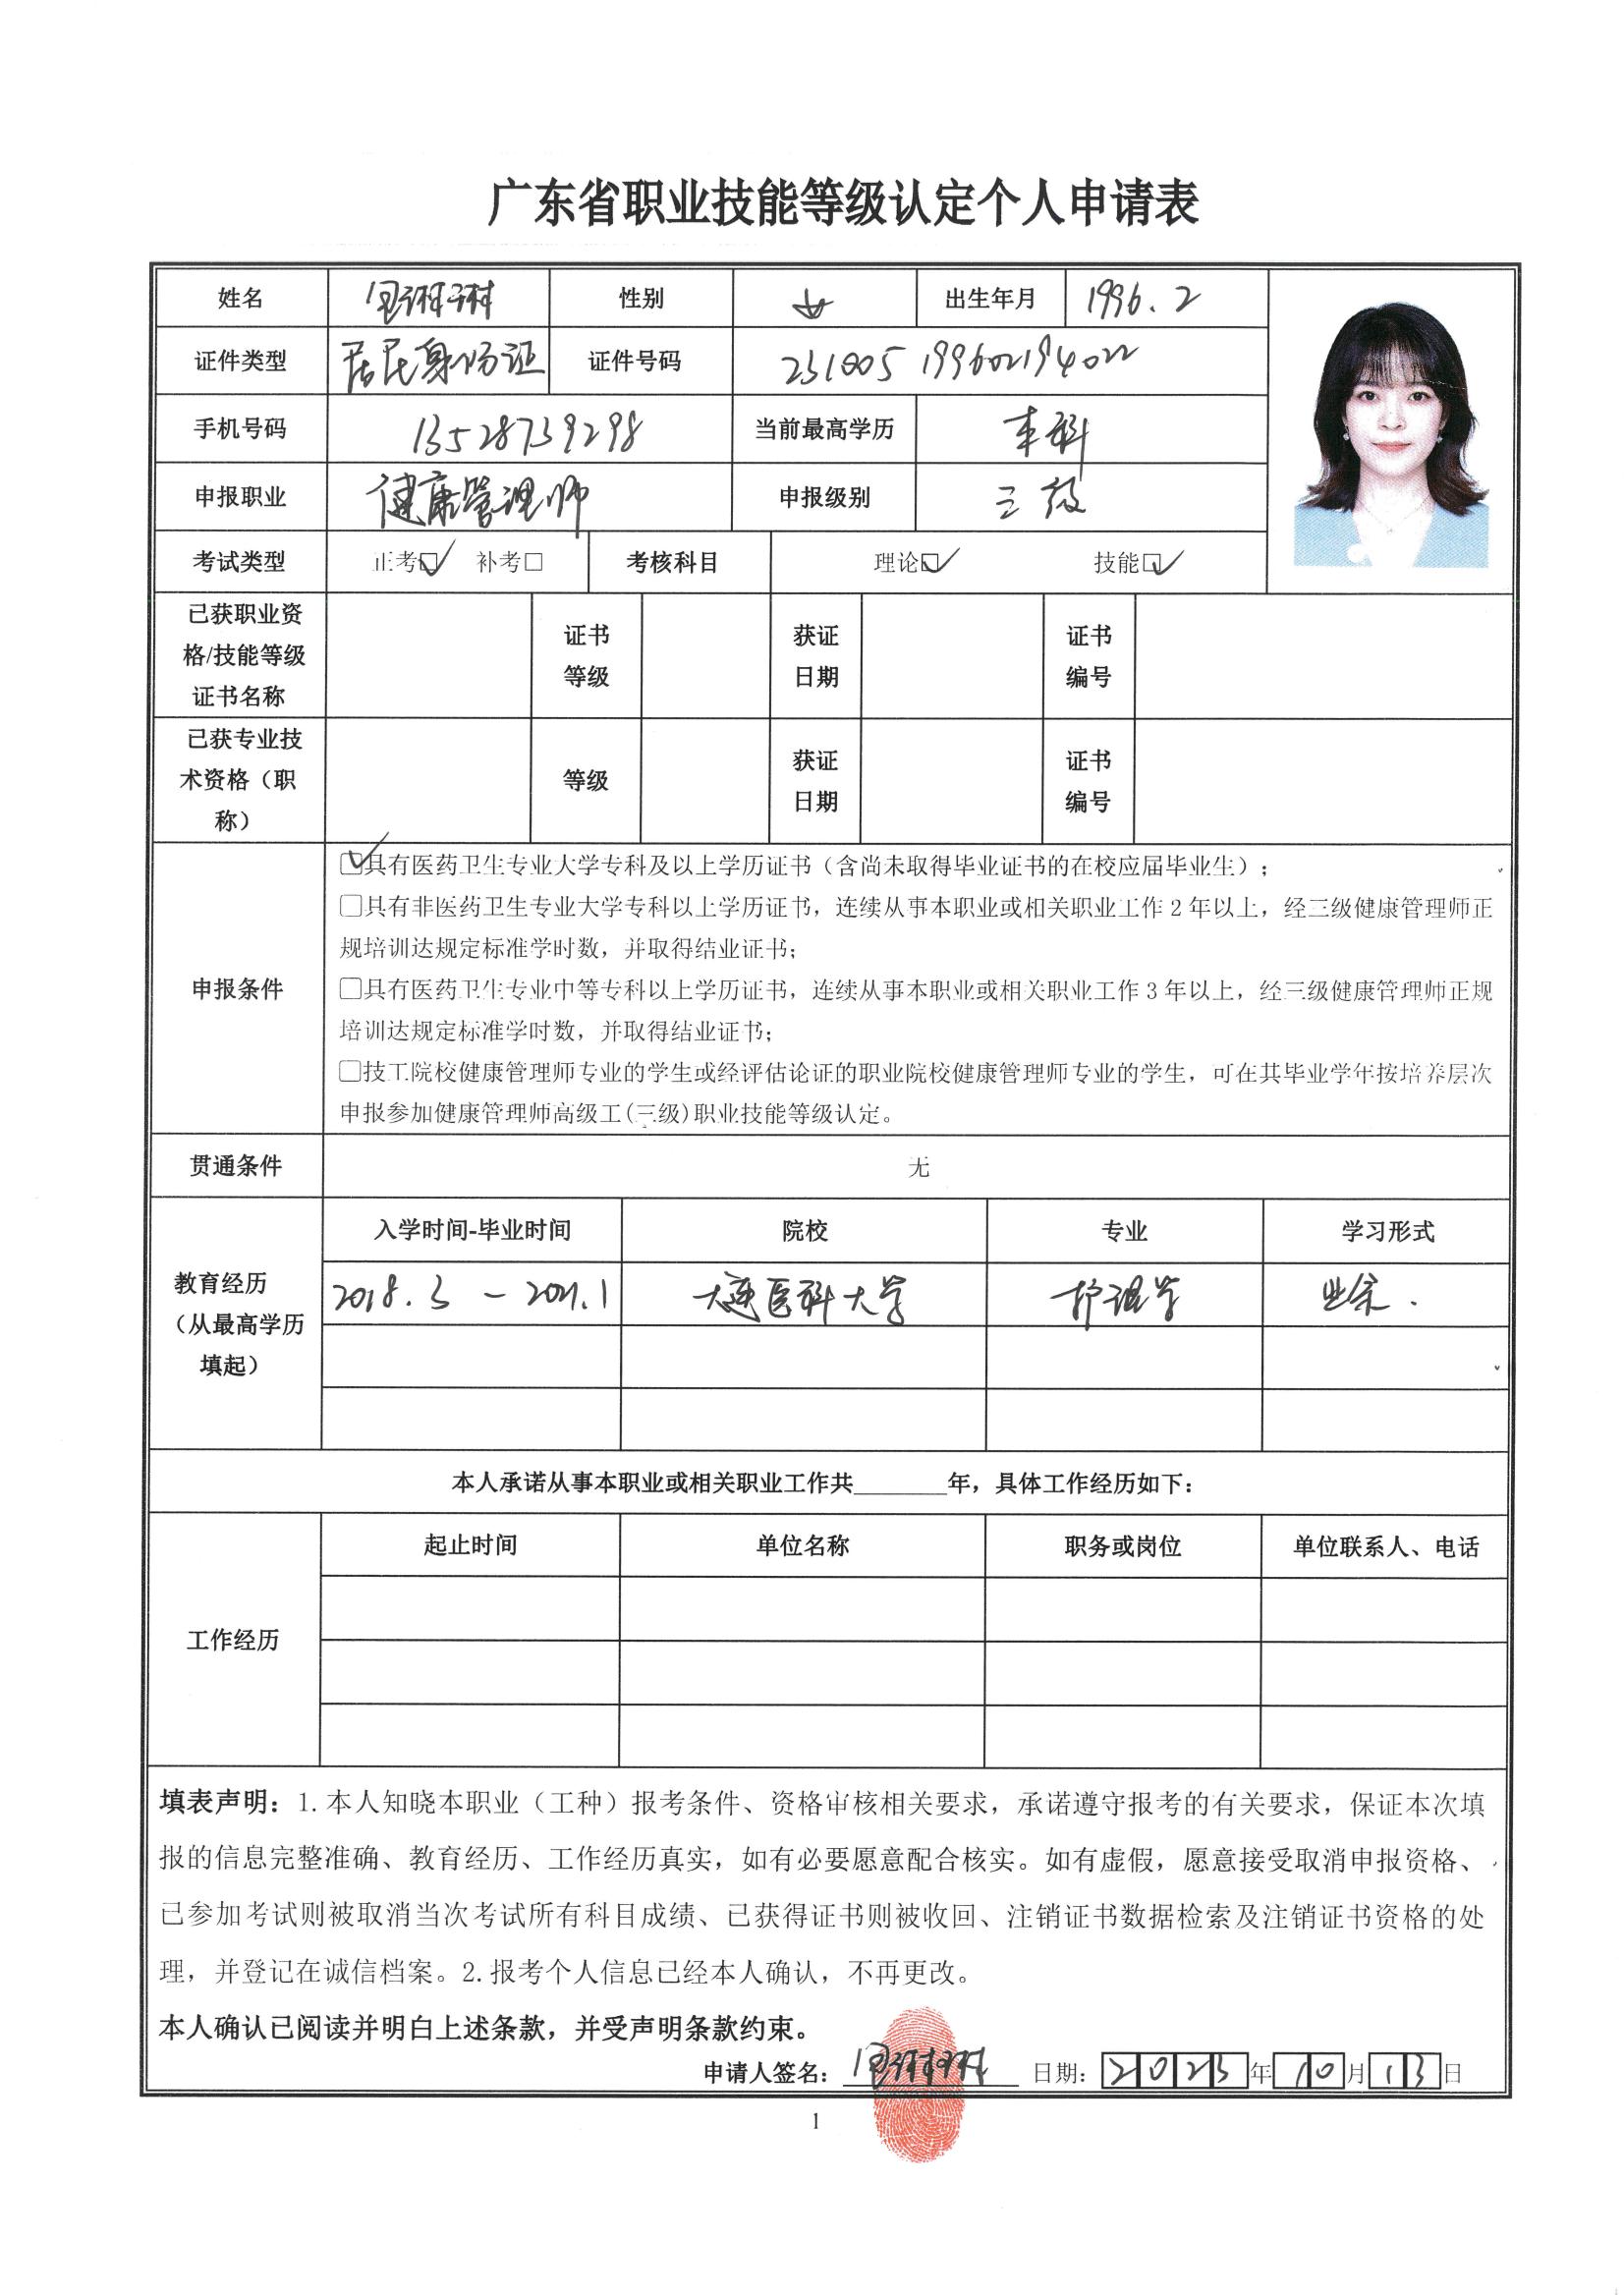 广东省职业技能等级认定个人申请表
姓名 性别 女 出生年月 1996.2
证件类型 居民身份证 证件号码 231005199602194022
手机号码 13528739298 当前最高学历 本科
申报职业 健康管理师 申报级别 三级
考试类型 正考☑ 补考□ 考核科目 理论☑ 技能☑
已获职业资
格/技能等级
证书名称
证书
等级
获证
日期
证书
编号
已获专业技
术资格（职
称）
等级
获证
日期
证书
编号
申报条件
☑具有医药卫生专业大学专科及以上学历证书（含尚未取得毕业证书的在校应届毕业生）；
□具有非医药卫生专业大学专科以上学历证书，连续从事本职业或相关职业工作2年以上，经三级健康管理师正
规培训达规定标准学时数，并取得结业证书；
□具有医药卫生专业中等专科以上学历证书，连续从事本职业或相关职业工作3年以上，经三级健康管理师正规
培训达规定标准学时数，并取得结业证书；
□技工院校健康管理师专业的学生或经评估论证的职业院校健康管理师专业的学生，可在其毕业学年按培养层次
申报参加健康管理师高级工(三级)职业技能等级认定。
贯通条件 无
教育经历
（从最高学历
填起）
入学时间-毕业时间 院校 专业 学习形式
2018.3 - 2021.1 大连医科大学 护理学 业余.
本人承诺从事本职业或相关职业工作共____年，具体工作经历如下：
工作经历
起止时间 单位名称 职务或岗位 单位联系人、电话
填表声明：1.本人知晓本职业（工种）报考条件、资格审核相关要求，承诺遵守报考的有关要求，保证本次填
报的信息完整准确、教育经历、工作经历真实，如有必要愿意配合核实。如有虚假，愿意接受取消申报资格、
已参加考试则被取消当次考试所有科目成绩、已获得证书则被收回、注销证书数据检索及注销证书资格的处
理，并登记在诚信档案。2.报考个人信息已经本人确认，不再更改。
本人确认已阅读并明白上述条款，并受声明条款约束。
申请人签名： 日期：2023年10月13日
1